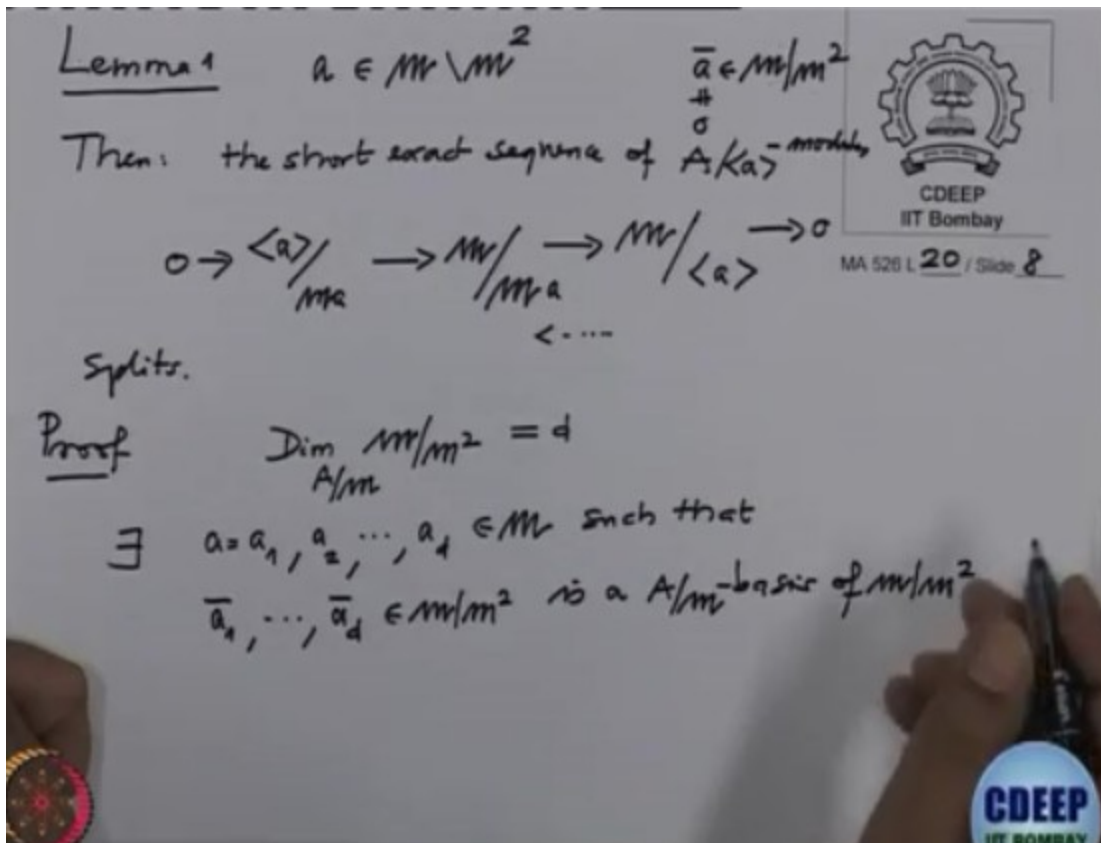 Lemma 1 a ∈ m \ m² ā ∈ m/m²
≠
0
Then: the short exact sequence of A/<a>-modules
0 → <a>/ma → m/ma → m/<a> → 0
<----
Splits.
Proof Dim_{A/m} m/m² = d
∃ a = a₁, a₂, ..., a_d ∈ m such that
ā₁, ..., ā_d ∈ m/m² is a A/m-basis of m/m²
CDEEP
IIT Bombay
MA 526 L 20 / Slide 8
CDEEP
IIT BOMBAY